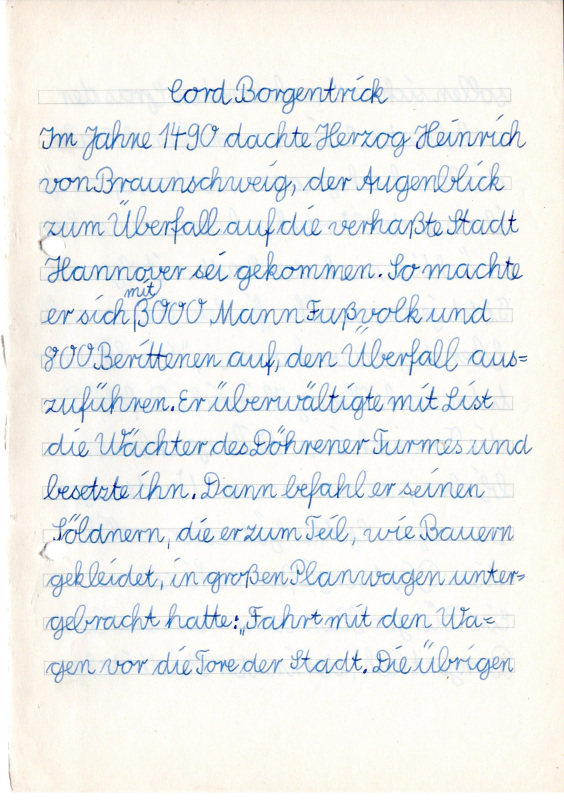 Cord Borgentrick
Im Jahre 1490 dachte Herzog Heinrich
von Braunschweig, der Augenblick
zum Überfall auf die verhaßte Stadt
Hannover sei gekommen. So machte
mit
er sich 3000 Mann Fußvolk und
800 Berittenen auf, den Überfall aus=
zuführen. Er überwältigte mit List
die Wächter des Döhrener Turmes und
besetzte ihn. Dann befahl er seinen
Söldnern, die er zum Teil, wie Bauern
gekleidet, in großen Planwagen unter=
gebracht hatte: „Fahrt mit den Wa=
gen vor die Tore der Stadt. Die übrigen